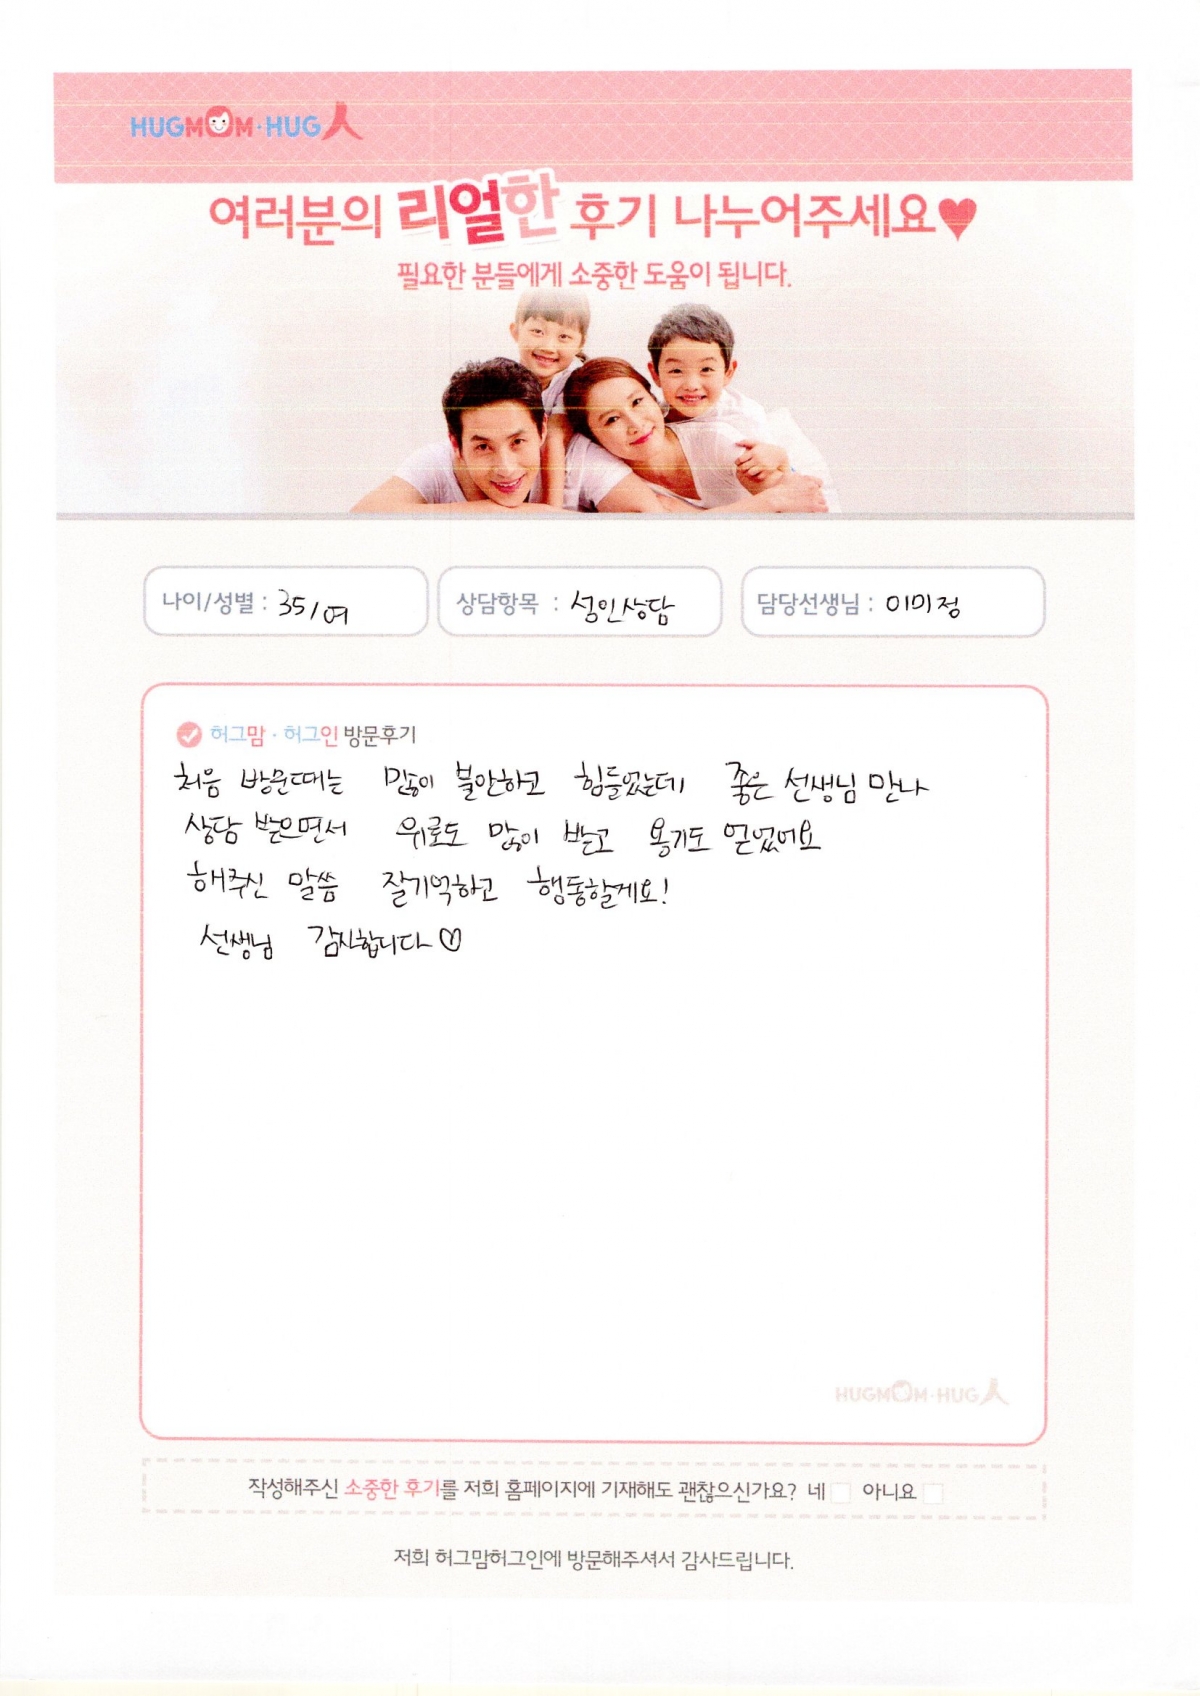 HUGMOM·HUG人
여러분의 리얼한 후기 나누어주세요♥
필요한 분들에게 소중한 도움이 됩니다.
나이/성별 : 35/여
상담항목 : 성인상담
담당선생님 : 이미정
허그맘 · 허그인 방문후기
처음 방문때는 많이 불안하고 힘들었는데 좋은 선생님 만나
상담 받으면서 위로도 많이 받고 용기도 얻었어요
해주신 말씀 잘기억하고 행동할게요!
선생님 감사합니다♡
HUGMOM·HUG人
작성해주신 소중한 후기를 저희 홈페이지에 기재해도 괜찮으신가요? 네 아니요
저희 허그맘허그인에 방문해주셔서 감사드립니다.